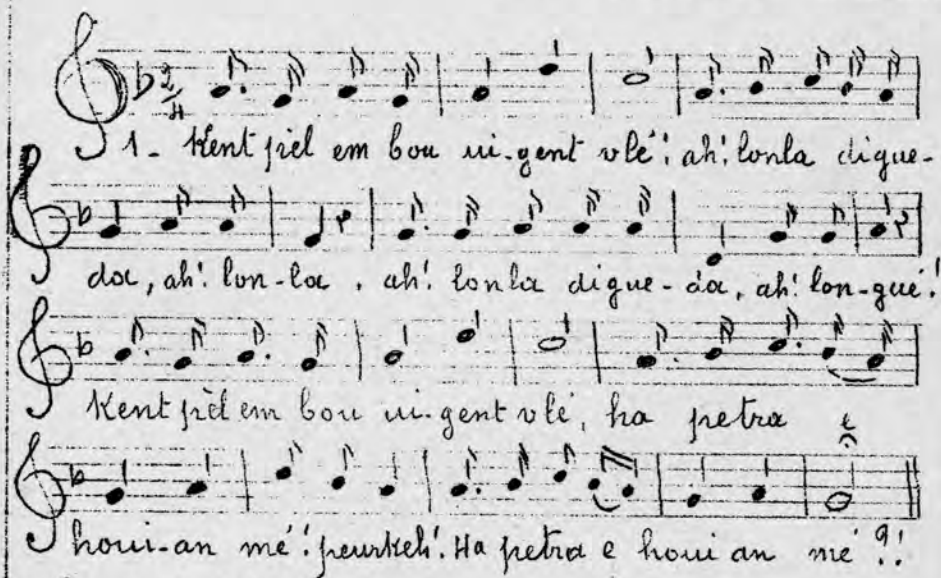 1- Kent pèl em bou ui-gent vlé! ah! lonla digue-
da, ah! lon-la, ah! lonla digue-da, ah! lon-gué!
Kent pèl em bou ui-gent vlé, ha petra e
houi-an mé! peurkeh! Ha petra e houi an mé?!